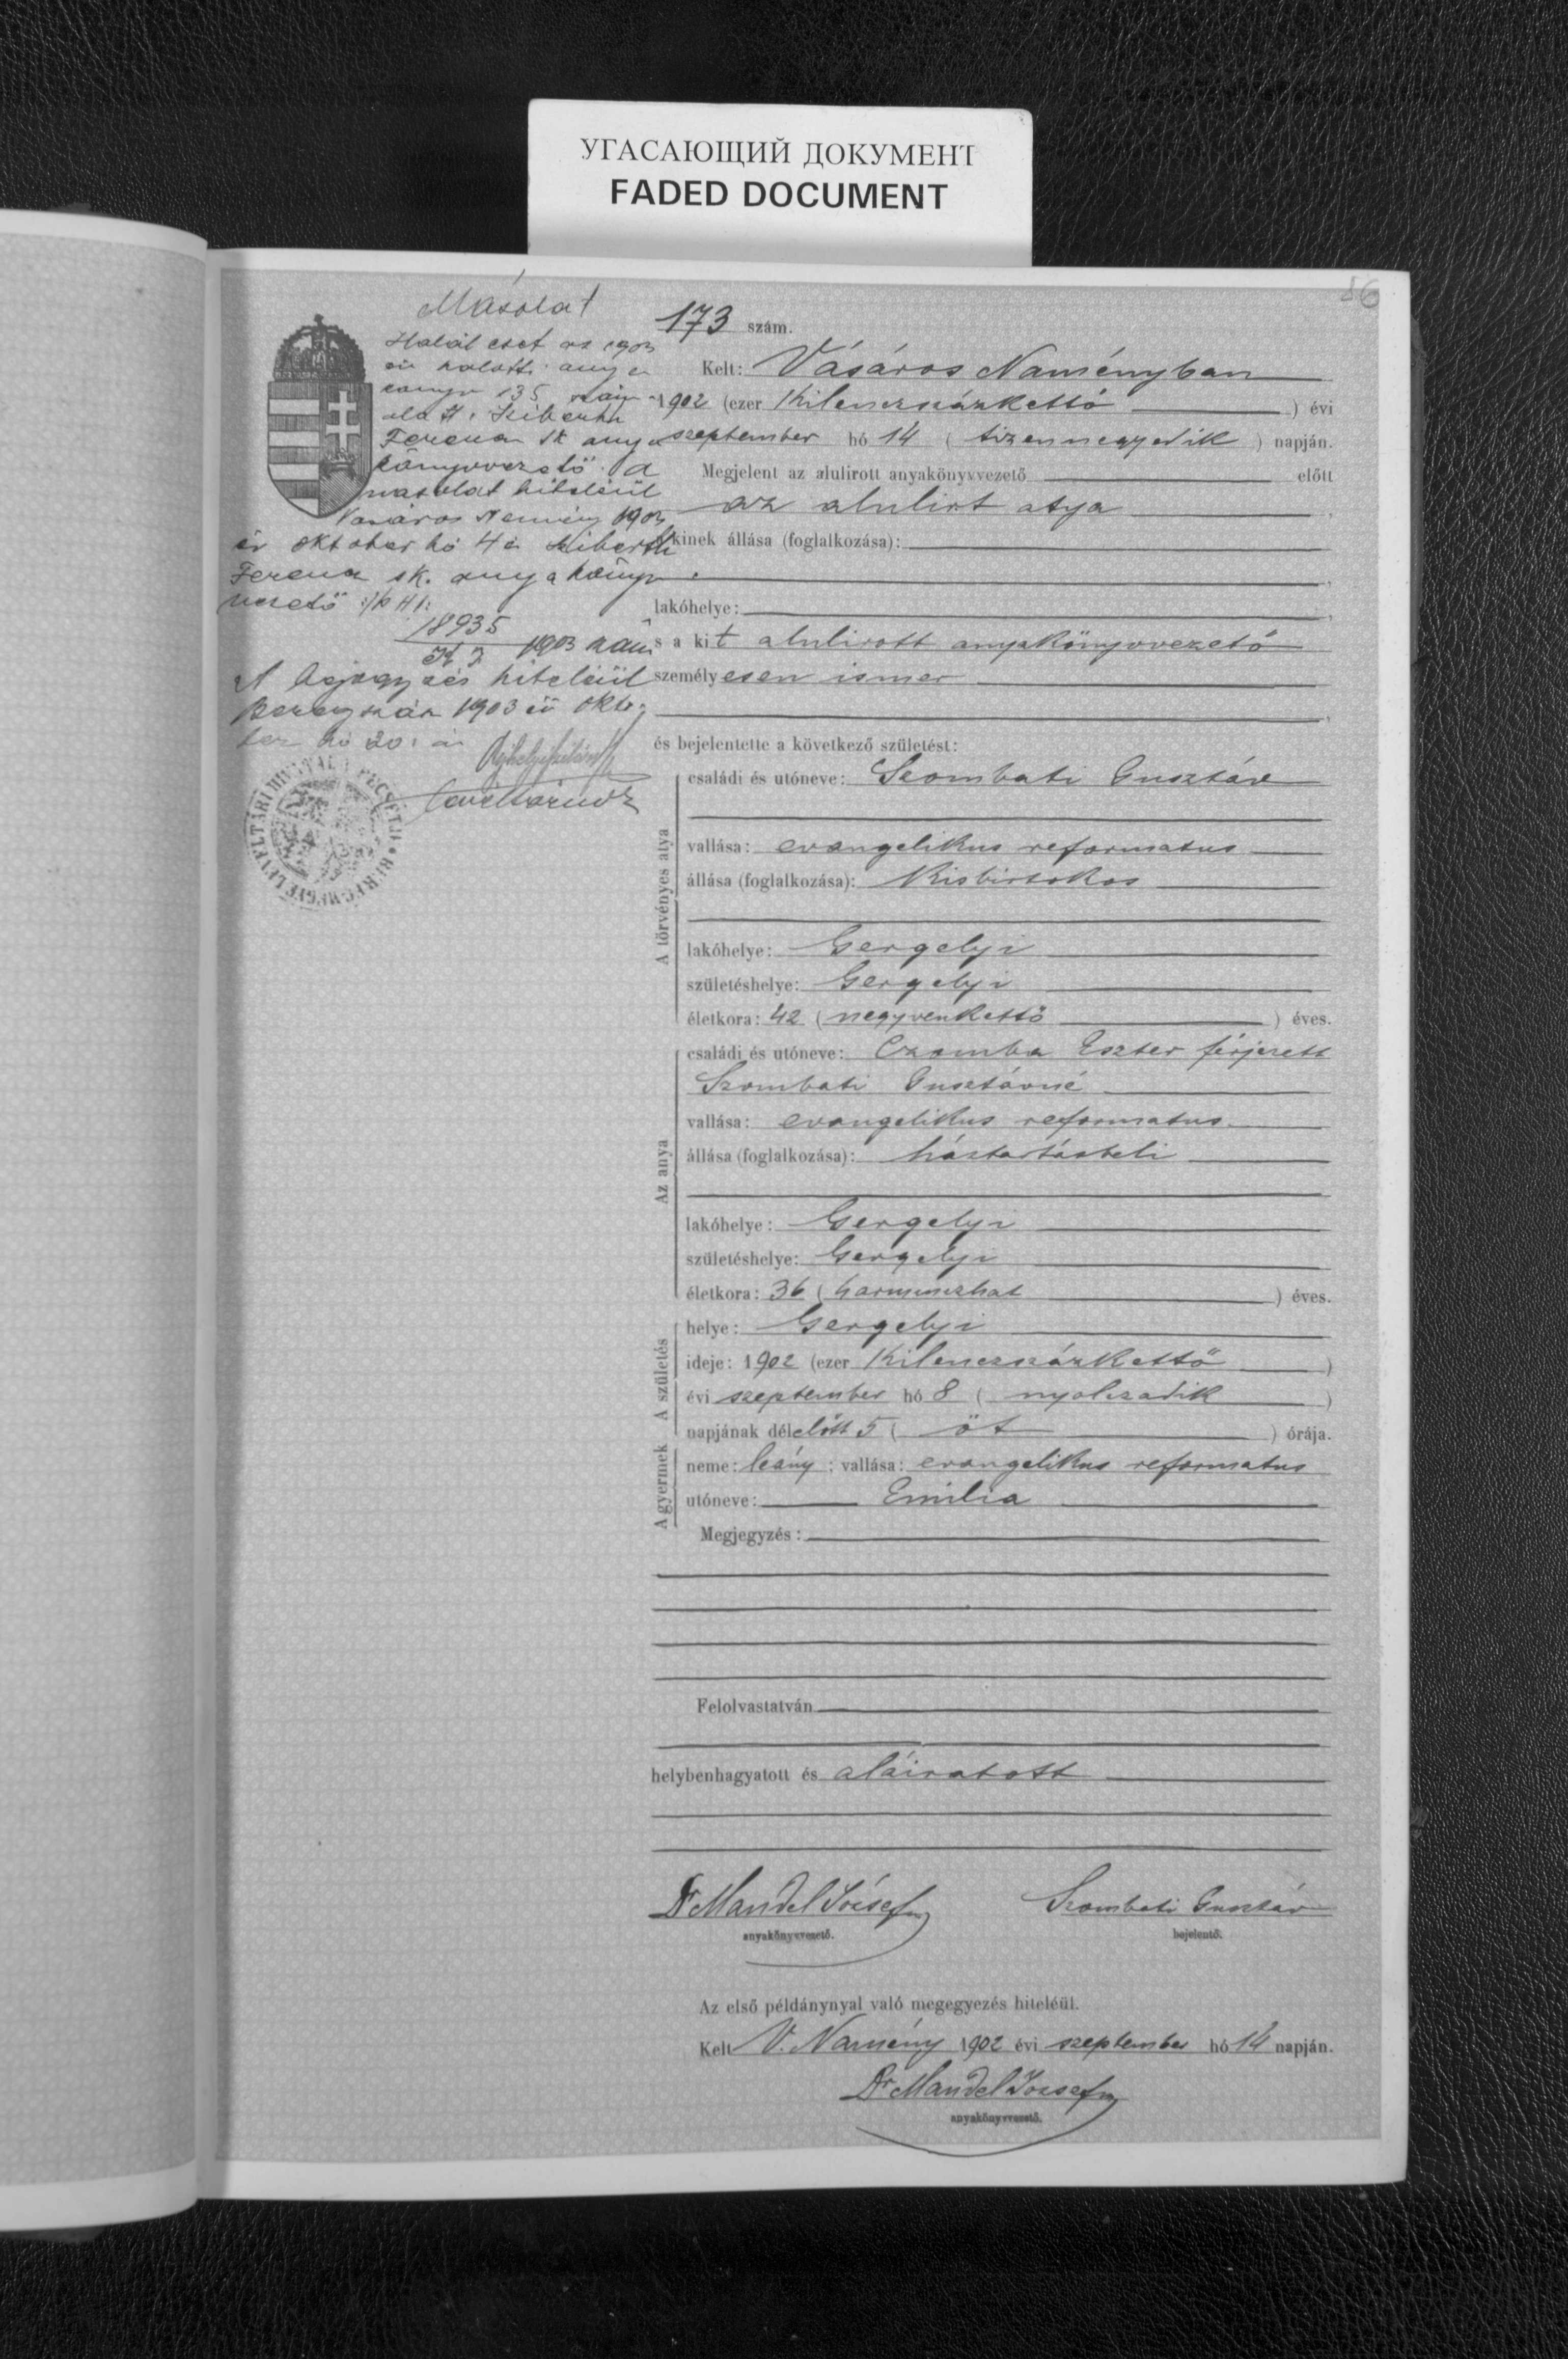 УГАСАЮЩИЙ ДОКУМЕНТ
FADED DOCUMENT
86
Másolat
Halál eset az 1903
évi halotti anya
könyv 135
alatt.
Ferencz sk anya
könyvvezető. A
másolat hiteléül
Vásáros Namény 1903
év október hó 4én
Ferencz sk. anyakönyv
vezető
18935
1903 szám
A bejegyzés hiteléül
Beregszász 1903 évi októ
ber hó 20. án
173 szám.
Kelt: Vásáros Naményban
1902 (ezer kilenczszázkettő) évi
szeptember hó 14 (tizennegyedik) napján.
Megjelent az alulirott anyakönyvvezető előtt
az alulirt atya
kinek állása (foglalkozása):
lakóhelye:
s a kit alulirott anyakönyvvezető
személyesen ismer
és bejelentette a következő születést:
A törvényes atya
családi és utóneve: Szombati Gusztáv
vallása: evangelikus reformatus
állása (foglalkozása): Kisbirtokos
lakóhelye: Gergelyi
születéshelye: Gergelyi
életkora: 42 (negyvenkettő) éves.
Az anya
családi és utóneve: Czomba Eszter férjezett
Szombati Gusztávné
vallása: evangelikus reformatus
állása (foglalkozása): háztartásbeli
lakóhelye: Gergelyi
születéshelye: Gergelyi
életkora: 36 (harminczhat) éves.
A születés
helye: Gergelyi
ideje: 1902 (ezer kilenczszázkettő)
évi szeptember hó 8 (nyolczadik)
napjának délelőtt 5 (öt) órája.
A gyermek
neme: leány; vallása: evangelikus reformatus
utóneve: Emilia
Megjegyzés:
Felolvastatván
helybenhagyatott és aláiratott
Dr Mandel József
Szombati Gusztáv
anyakönyvvezető.
bejelentő.
Az első példánynyal való megegyezés hiteléül.
Kelt V. Namény 1902 évi szeptember hó 14 napján.
Dr Mandel József
anyakönyvvezető.